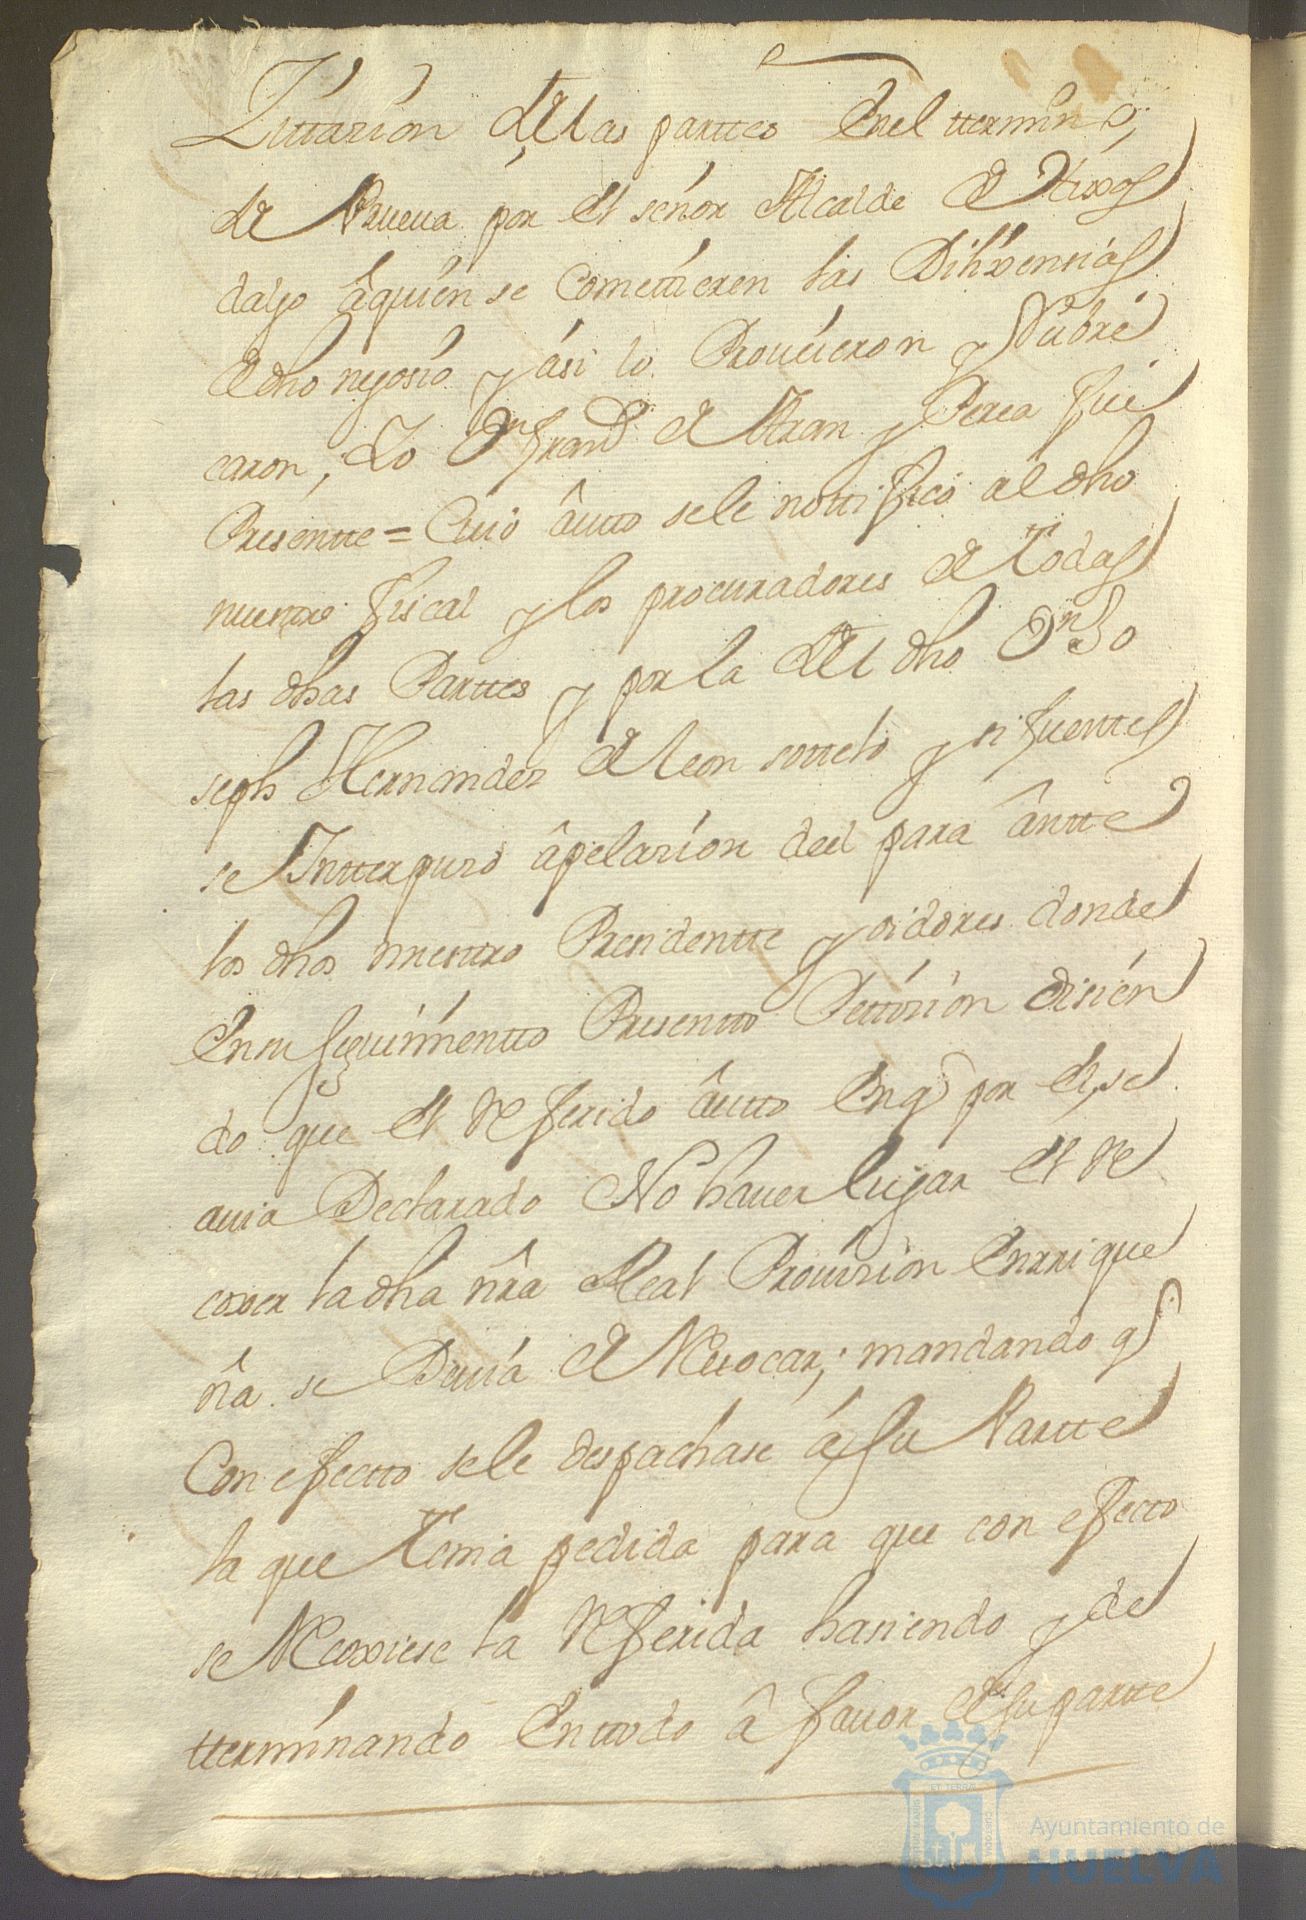 Zittazíon de las parttes en el ttermino
de Prueua por el señor Alcalde de Hixos
dalgo âquien se Comettieren las Dilixensias
de dho negosio y asi lo Proueieron y Rubri
caron, Yo Dn Franco de Aran y Perea fui
Presentte = Cuio âutto se le nottifico al dho
nuestro fiscal y los procuradores de todas
las dhas Parttes y por la del dho Dn Jo
seph Hernandez de leon sottelo y sifuenttes
se Intterpuso âpelazion del para ântte
los dhos nuestro Presidentte y oidores donde
en su seguimientto Presentto Pettision disien
do que el Referido âutto en q por el, se
auia Declarado No hauer lugar el Re
coxer la dha nra Real Prouision Enrrique
ña se Deuia de Reuocar; mandando q
Con efectto se le despachase â su Partte
la que tenia pedida para que con efecto
se Recoxiese la Referida hasiendo y de
tterminando en ttodo â fauor de su partte
Ayuntamiento de
HUELVA